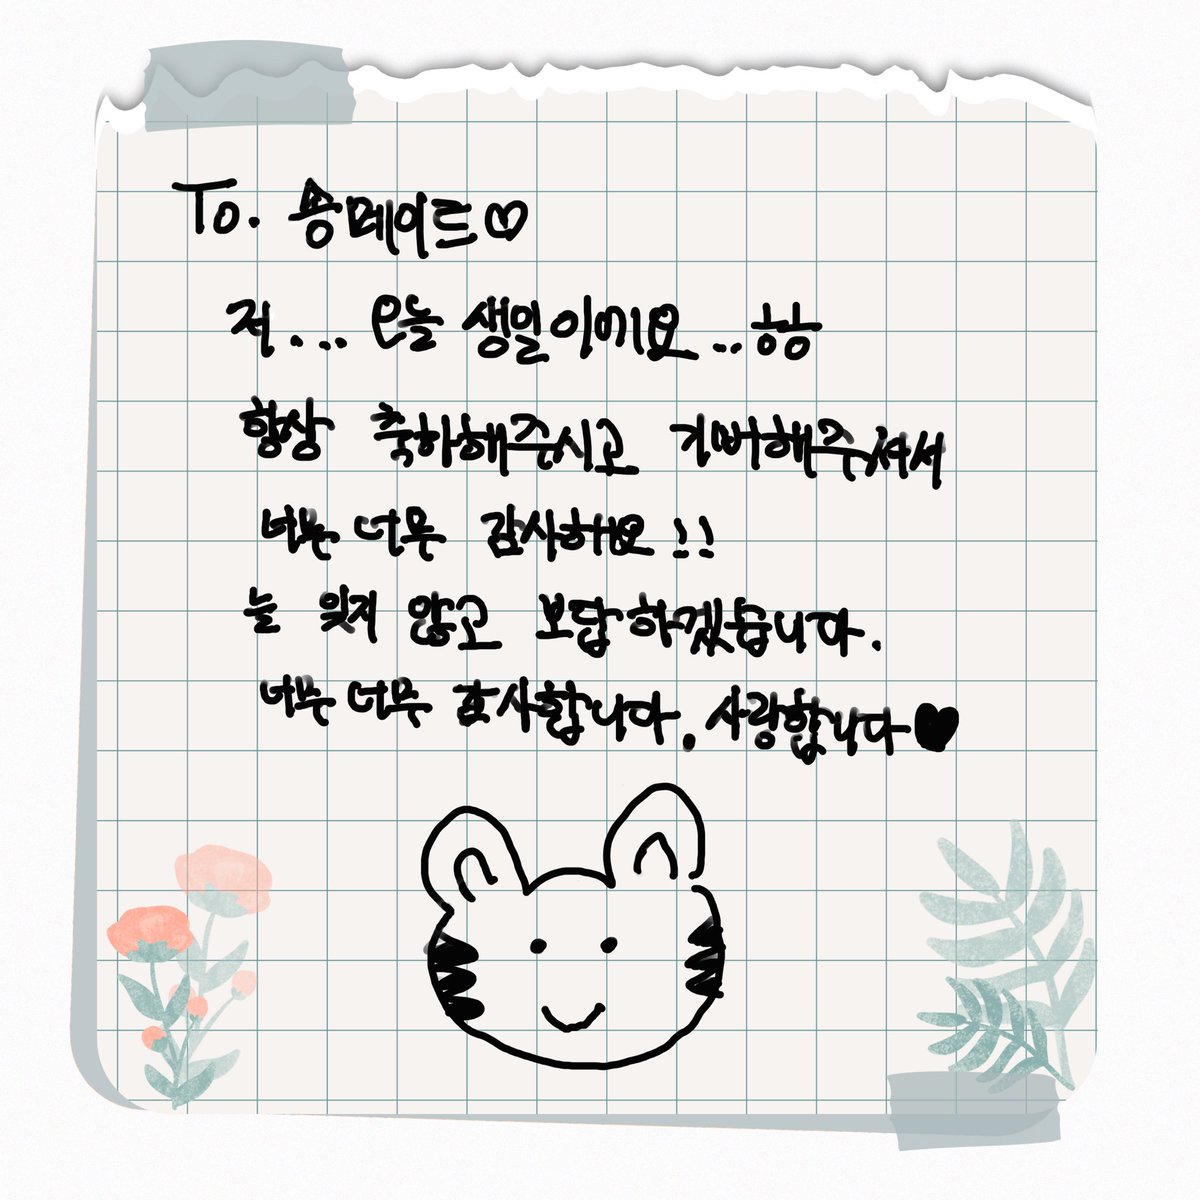 To. 송메이트♡
저... 오늘 생일이에요...ㅎㅎ
항상 축하해주시고 기뻐해주셔서
너무 너무 감사해요!!
늘 잊지 않고 보답하겠습니다.
너무 너무 감사합니다. 사랑합니다♥